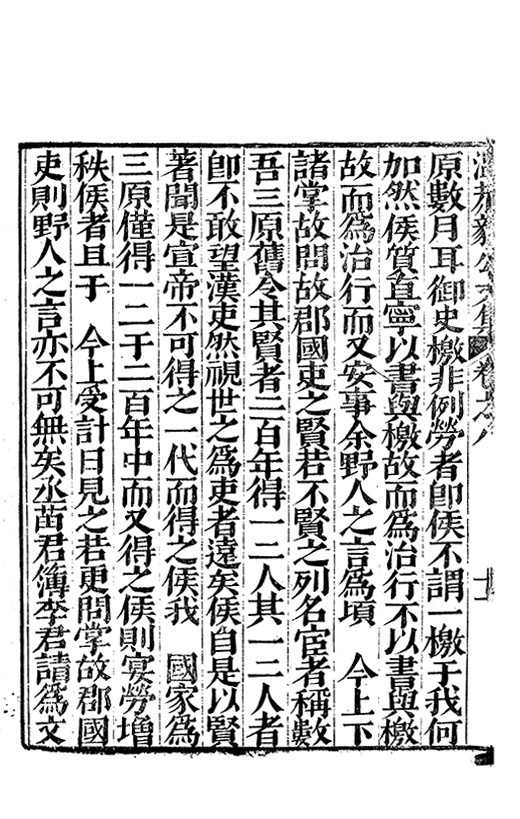 溫恭毅公文集 卷之八 十一
原數月耳御史檄非例勞者卽侯不謂一檄于我何
加然侯質直寧以書與檄故而爲治行不以書與檄
故而爲治行而又安事余野人之言爲頃　今上下
諸掌故問故郡國吏之賢若不賢之列名宦者稱數
吾三原舊令其賢者二百年得一二人其一二人者
卽不敢望漢吏然視世之爲吏者遠矣侯自是以賢
著聞是宣帝不可得之一代而得之侯我　國家爲
三原僅得一二于二百年中而又得之侯則宴勞增
秩侯者且于　今上受計日見之若更問掌故郡國
吏則野人之言亦不可無矣丞苗君簿李君請爲文